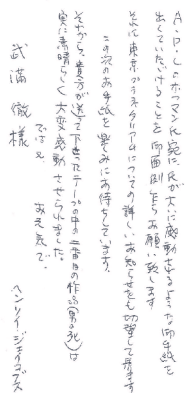 A.P.L.のホフマン氏宛に、氏が大いに感動させるような御手紙を
出していただけることを御面倒乍らお願い致します
それに東京プラネタリアムについての詳しいお知らせをも切望して居ります
この次のお手紙を楽しみにお待ちしています。
それから、貴方が送って下さったテープの中の一番目の作品(男の死)は
実に素晴らしく大変感動させられました。
では又
お元気で、
ヘンリイ・ジェイコブス
武満徹様